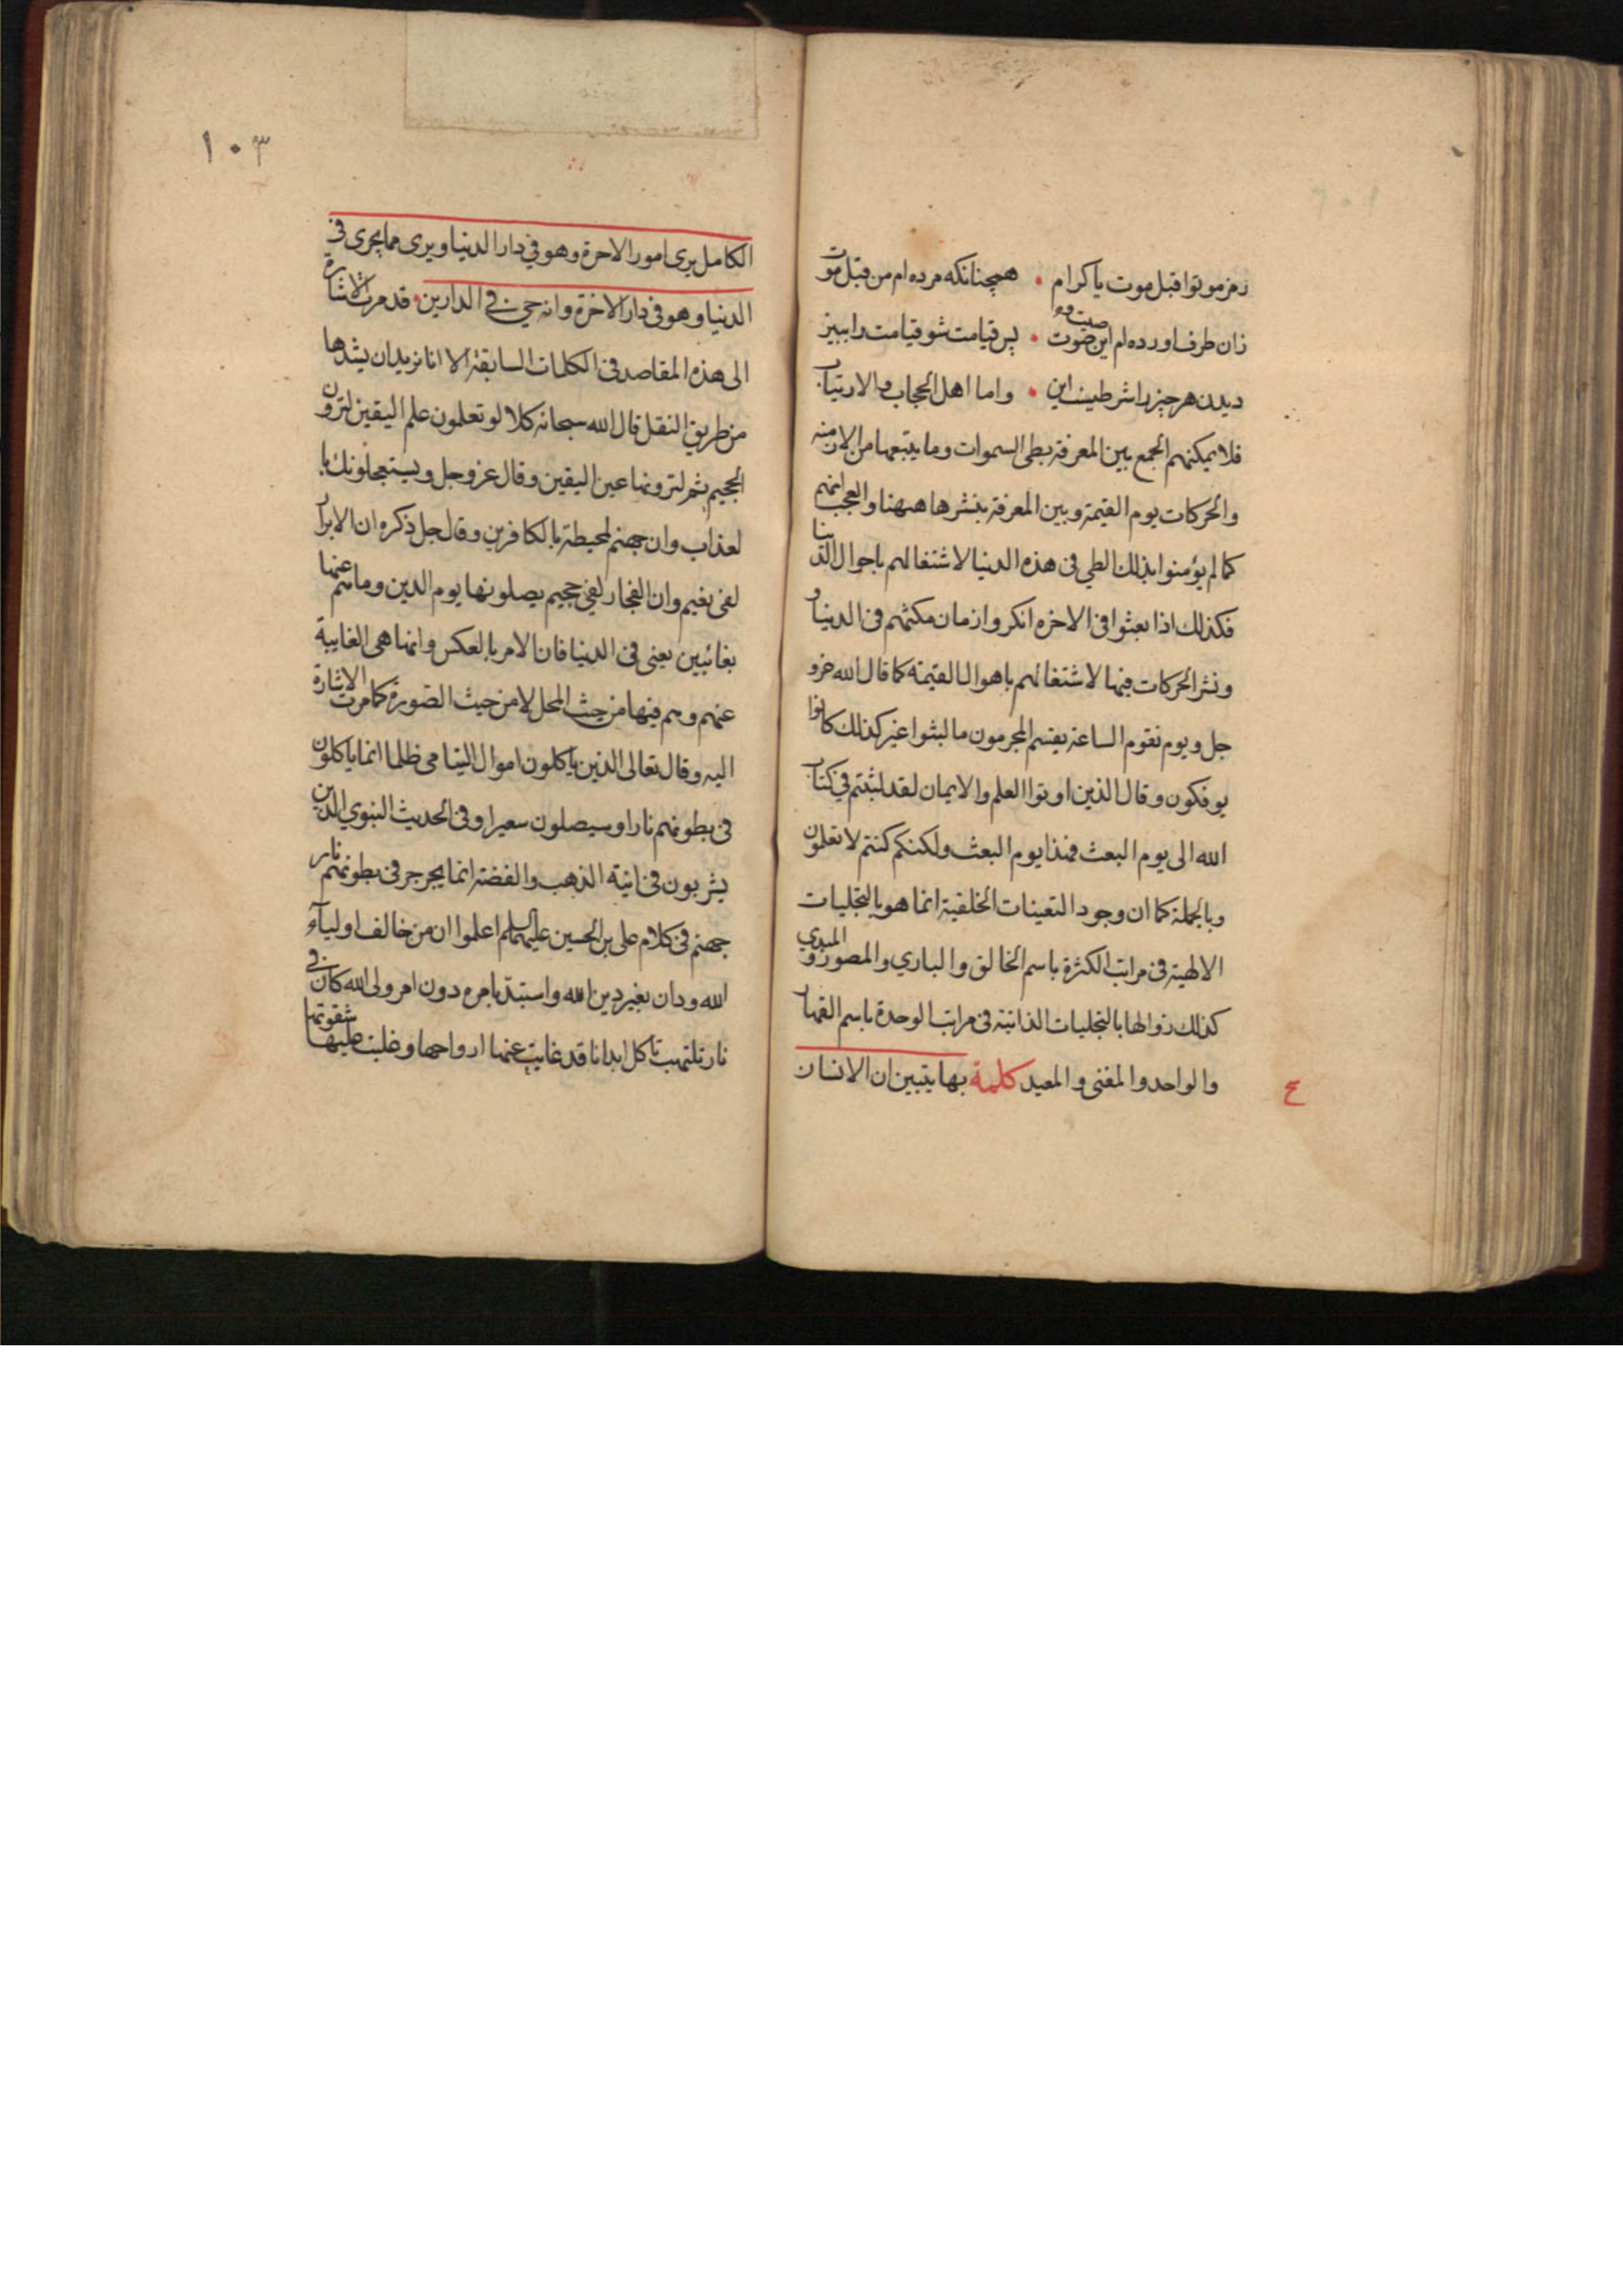 رمز موتوا قبل موت يا كرام • همچنانكه مرده ام من قبل موت
زان طرف اورده ام اين صوت • پس قيامت شو قيامت را ببين
صيت و
ديدن هر چيز را شرطيست اين • واما اهل الحجاب والارتياب
فلا يمكنهم الجمع بين المعرفة بطى السموات وما يتبعها من الازمنه
والحركات يوم القيمة وبين المعرفة بنشرها ههنا والعجب انهم
كما لم يؤمنوا بذلك الطي فى هذه الدنيا لاشتغالهم باحوال الدنيا
فكذلك اذا بعثوا فى الاخره انكروا زمان مكثهم فى الدنيا و
ونشر الحركات فيها لاشتغالهم باهوال القيمة كما قال الله عز و
جل ويوم تقوم الساعة يقسم المجرمون ما لبثوا غير كذلك كانوا
يوفكون وقال الذين اوتوا العلم والايمان لقد لبثتم في كتاب
الله الى يوم البعث فهذا يوم البعث ولكنكم كنتم لا تعلمون
وبالجملة كما ان وجود التعينات الخلقية انما هو بالتجليات
الالهية فى مراتب الكثرة باسم الخالق والباري والمصور والمبدي
كذلك زوالها بالتجليات الذاتية فى مراتب الوحدة باسم القهار
والواحد والمفنى والمعيد كلمة بها يتبين ان الانسان
ع
١٠٣
الكامل يرى امور الاخرة وهو في دار الدنيا ويرى ما يجرى فى
الدنيا وهو فى دار الاخرة وانه حي في الدارين • قد مرت الاشارة
الى هذه المقاصد فى الكلمات السابقة الا انا نريد ان يشدها
من طريق النقل قال الله سبحانه كلا لو تعلمون علم اليقين لترون
الجحيم ثم لترونها عين اليقين وقال عز وجل ويستعجلونك با
لعذاب وان جهنم لمحيطة بالكافرين وقال جل ذكره ان الابرار
لفى نعيم وان الفجار لفي جحيم يصلونها يوم الدين وما هم عنها
بغائبين يعنى فى الدنيا فان الامر بالعكس وانها هى الغايبة
عنهم وهم فيها من حيث المحل لا من حيث الصورة كما مرت الاشارة
اليه وقال تعالى الذين ياكلون اموال اليتامى ظلما انما ياكلون
فى بطونهم نارا وسيصلون سعيرا وفى الحديث النبوي الذين
يشربون فى انية الذهب والفضة انما يجرجر فى بطونهم نار
جهنم فى كلام على بن الحسين عليهما السلم اعلموا ان من خالف اولياء
الله ودان بغير دين الله واستبد بامره دون امر ولى الله كان في
نار تلتهب تاكل ابدانا قد غابت عنها ارواحها وغلبت عليها شقوتها